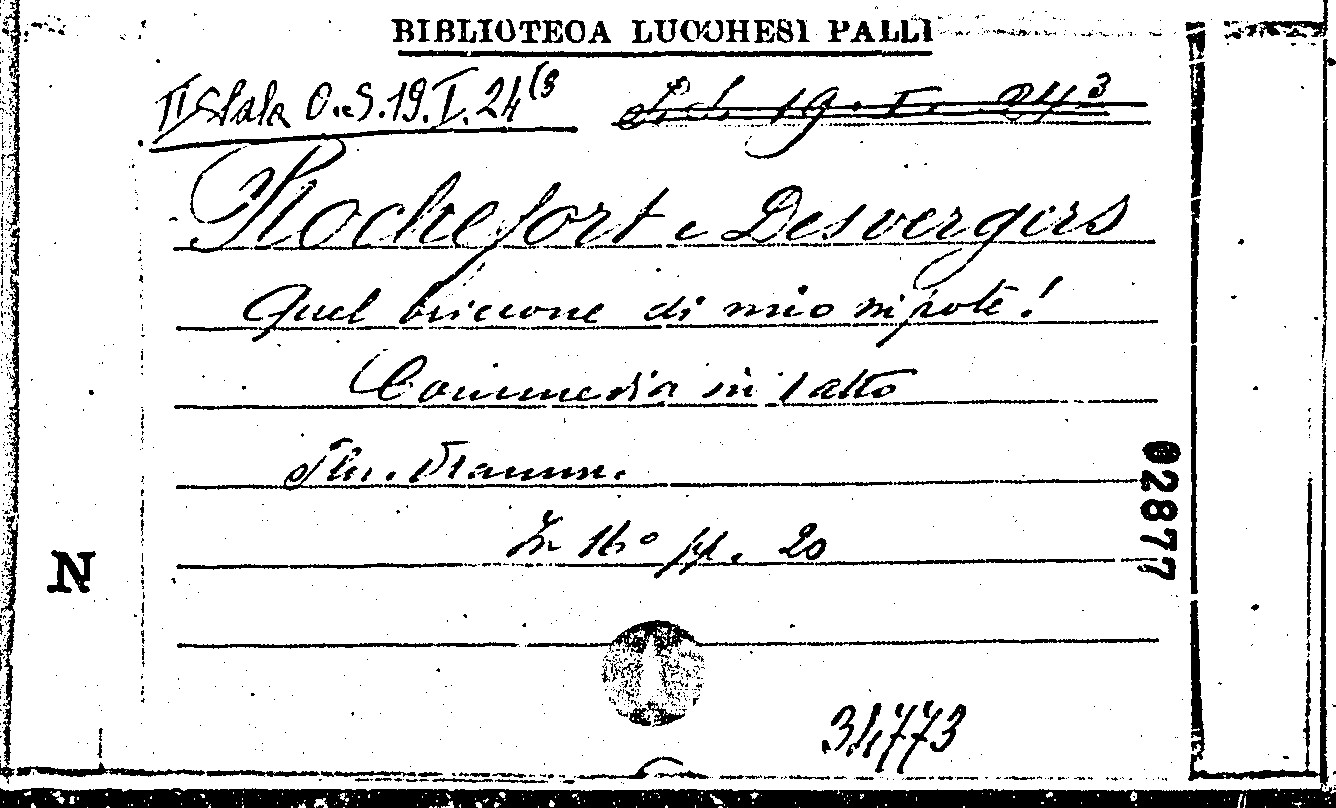 BIBLIOTECA LUCCHESI PALLI
II Sala O.S.19.I.24(3
19. I. 24 3
Rochefort e Desvergers
Quel briccone di mio nipote!
Commedia in 1 atto
In 16.° pp. 20
02877
N
34773